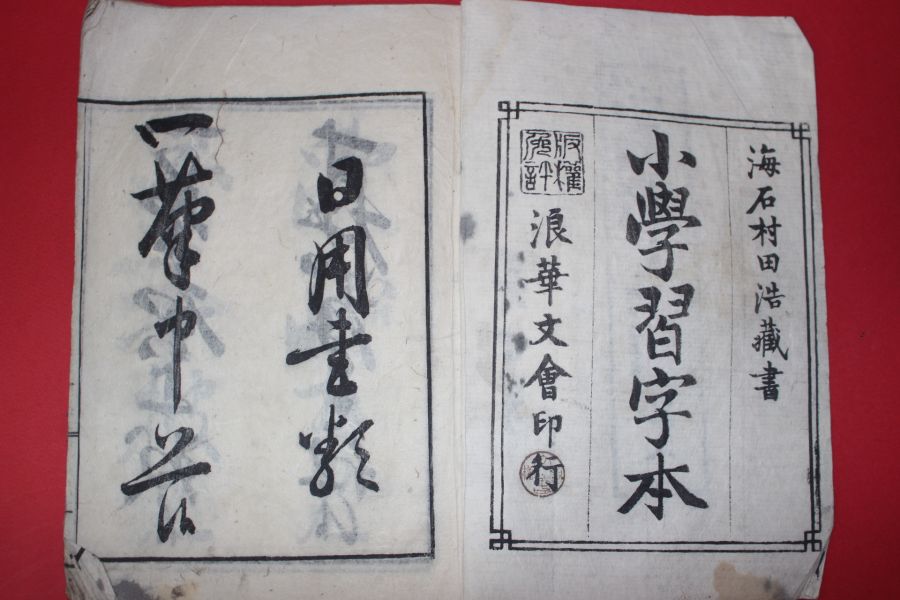 海石村田浩藏書
小學習字本
版權免許
浪華文會印行
日用書類
一筆申上